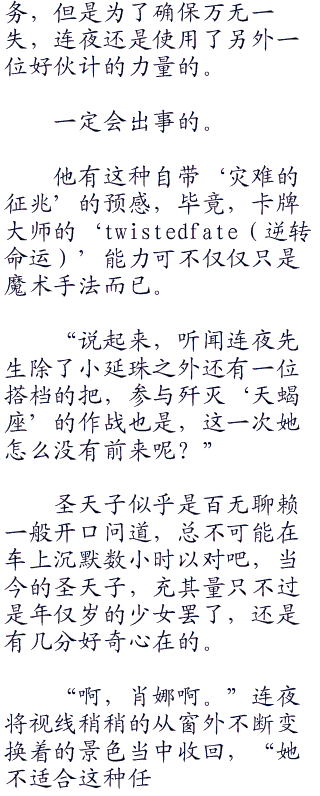 务，但是为了确保万无一
失，连夜还是使用了另外一
位好伙计的力量的。
一定会出事的。
他有这种自带‘灾难的
征兆’的预感，毕竟，卡牌
大师的‘twistedfate（逆转
命运）’能力可不仅仅只是
魔术手法而已。
“说起来，听闻连夜先
生除了小延珠之外还有一位
搭档的把，参与歼灭‘天蝎
座’的作战也是，这一次她
怎么没有前来呢？”
圣天子似乎是百无聊赖
一般开口问道，总不可能在
车上沉默数小时以对吧，当
今的圣天子，充其量只不过
是年仅岁的少女罢了，还是
有几分好奇心在的。
“啊，肖娜啊。”连夜
将视线稍稍的从窗外不断变
换着的景色当中收回，“她
不适合这种任